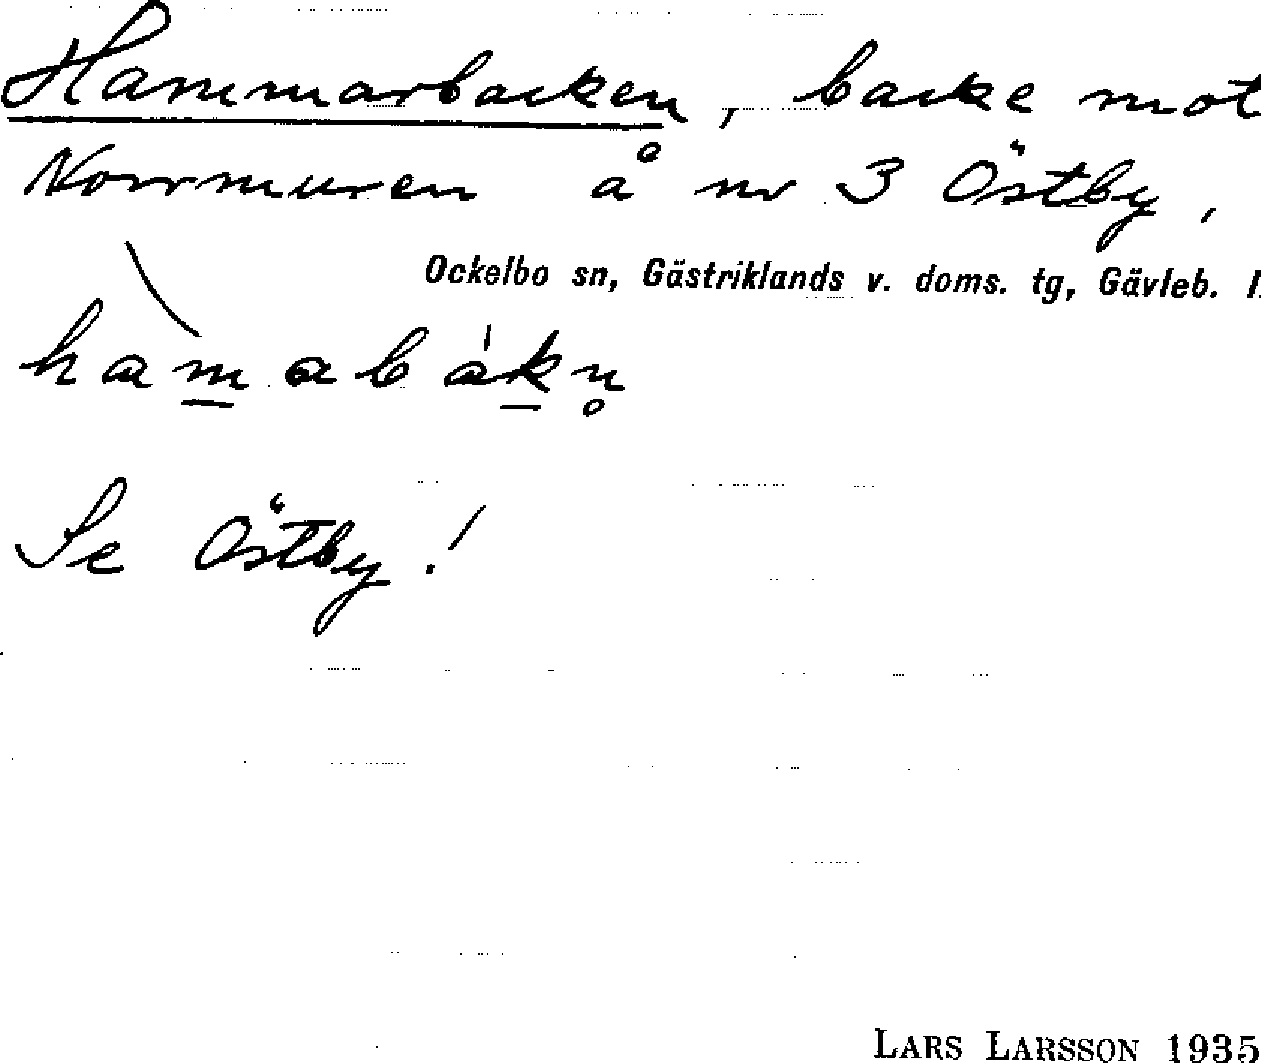 Hammarbacken, backe mot
Norrmuren å nr 3 Östby,
Ockelbo sn, Gästriklands v. doms. tg, Gävleb. l.
hàm̲abák̲n̥
Se Östby!
LARS LARSSON 1935